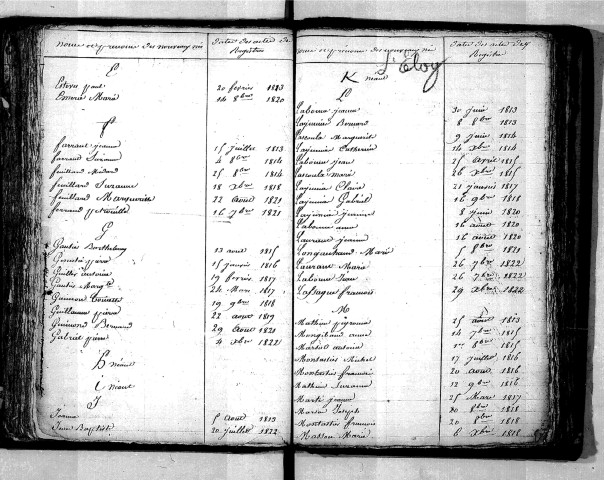 Noms et prénoms des nouveaux nés Dates des actes de Registre
E
Esteve paul 20 fevrier 1813
Emerie Marie 14 8bre 1820
F
farraut jeanne 15 juillet 1813
farraud Suzanne 4 8bre 1814
feuillard 25 8bre 1814
feuillard Suzanne 18 Xbre 1818
feuillard Marguerite 22 aout 1821
ferrand 16 7bre 1821
G
Gautié Barthelemy 13 aout 1815
pierre 15 janvier 1816
antoine 19 fevrier 1817
Gautié Margte 24 Mars 1817
19 9bre 1818
Guillaumes pierre 22 aout 1819
Guimond Bernard 29 aout 1821
Gabriel pierre 4 Xbre 1822
h néant
i néant
J
Jeanne 5 aout 1813
Jean Baptiste 20 juillet 1822
Noms et prénoms des nouveaux nés Dates des actes de Registre
St Eloy
K néant
L
Laborme jeanne 30 juin 1813
Lajeunie Bernard 8 8bre 1813
Lascoule Marguerite 9 juin 1814
Lajeunie Catherine 14 Xbre 1814
Laborme jean 25 avril 1815
Lascoule marie 26 Xbre 1815
Lajeunie Claire 21 janvier 1817
Lajeunie Gabriel 16 9bre 1818
Lajeunie jeanne 8 juin 1820
Laborme anne 16 aout 1820
Laurand jeanne 16 aout 1820
Marie 5 8bre 1821
Laurand Marie 26 7bre 1822
Laborme 26 7bre 1822
Lassagne francois 29 Xbre 1822
M
Mathieu 25 aout 1813
anne 14 7bre 1815
antoine 1er 8bre 1815
Montastié Michel 17 juillet 1816
Montastié francois 20 aout 1816
Mathieu Suzanne 12 9bre 1816
Marti jeanne 25 Mars 1817
Joseph 20 8bre 1818
Montastié francois 20 9bre 1818
Masson Marie 6 Xbre 1818